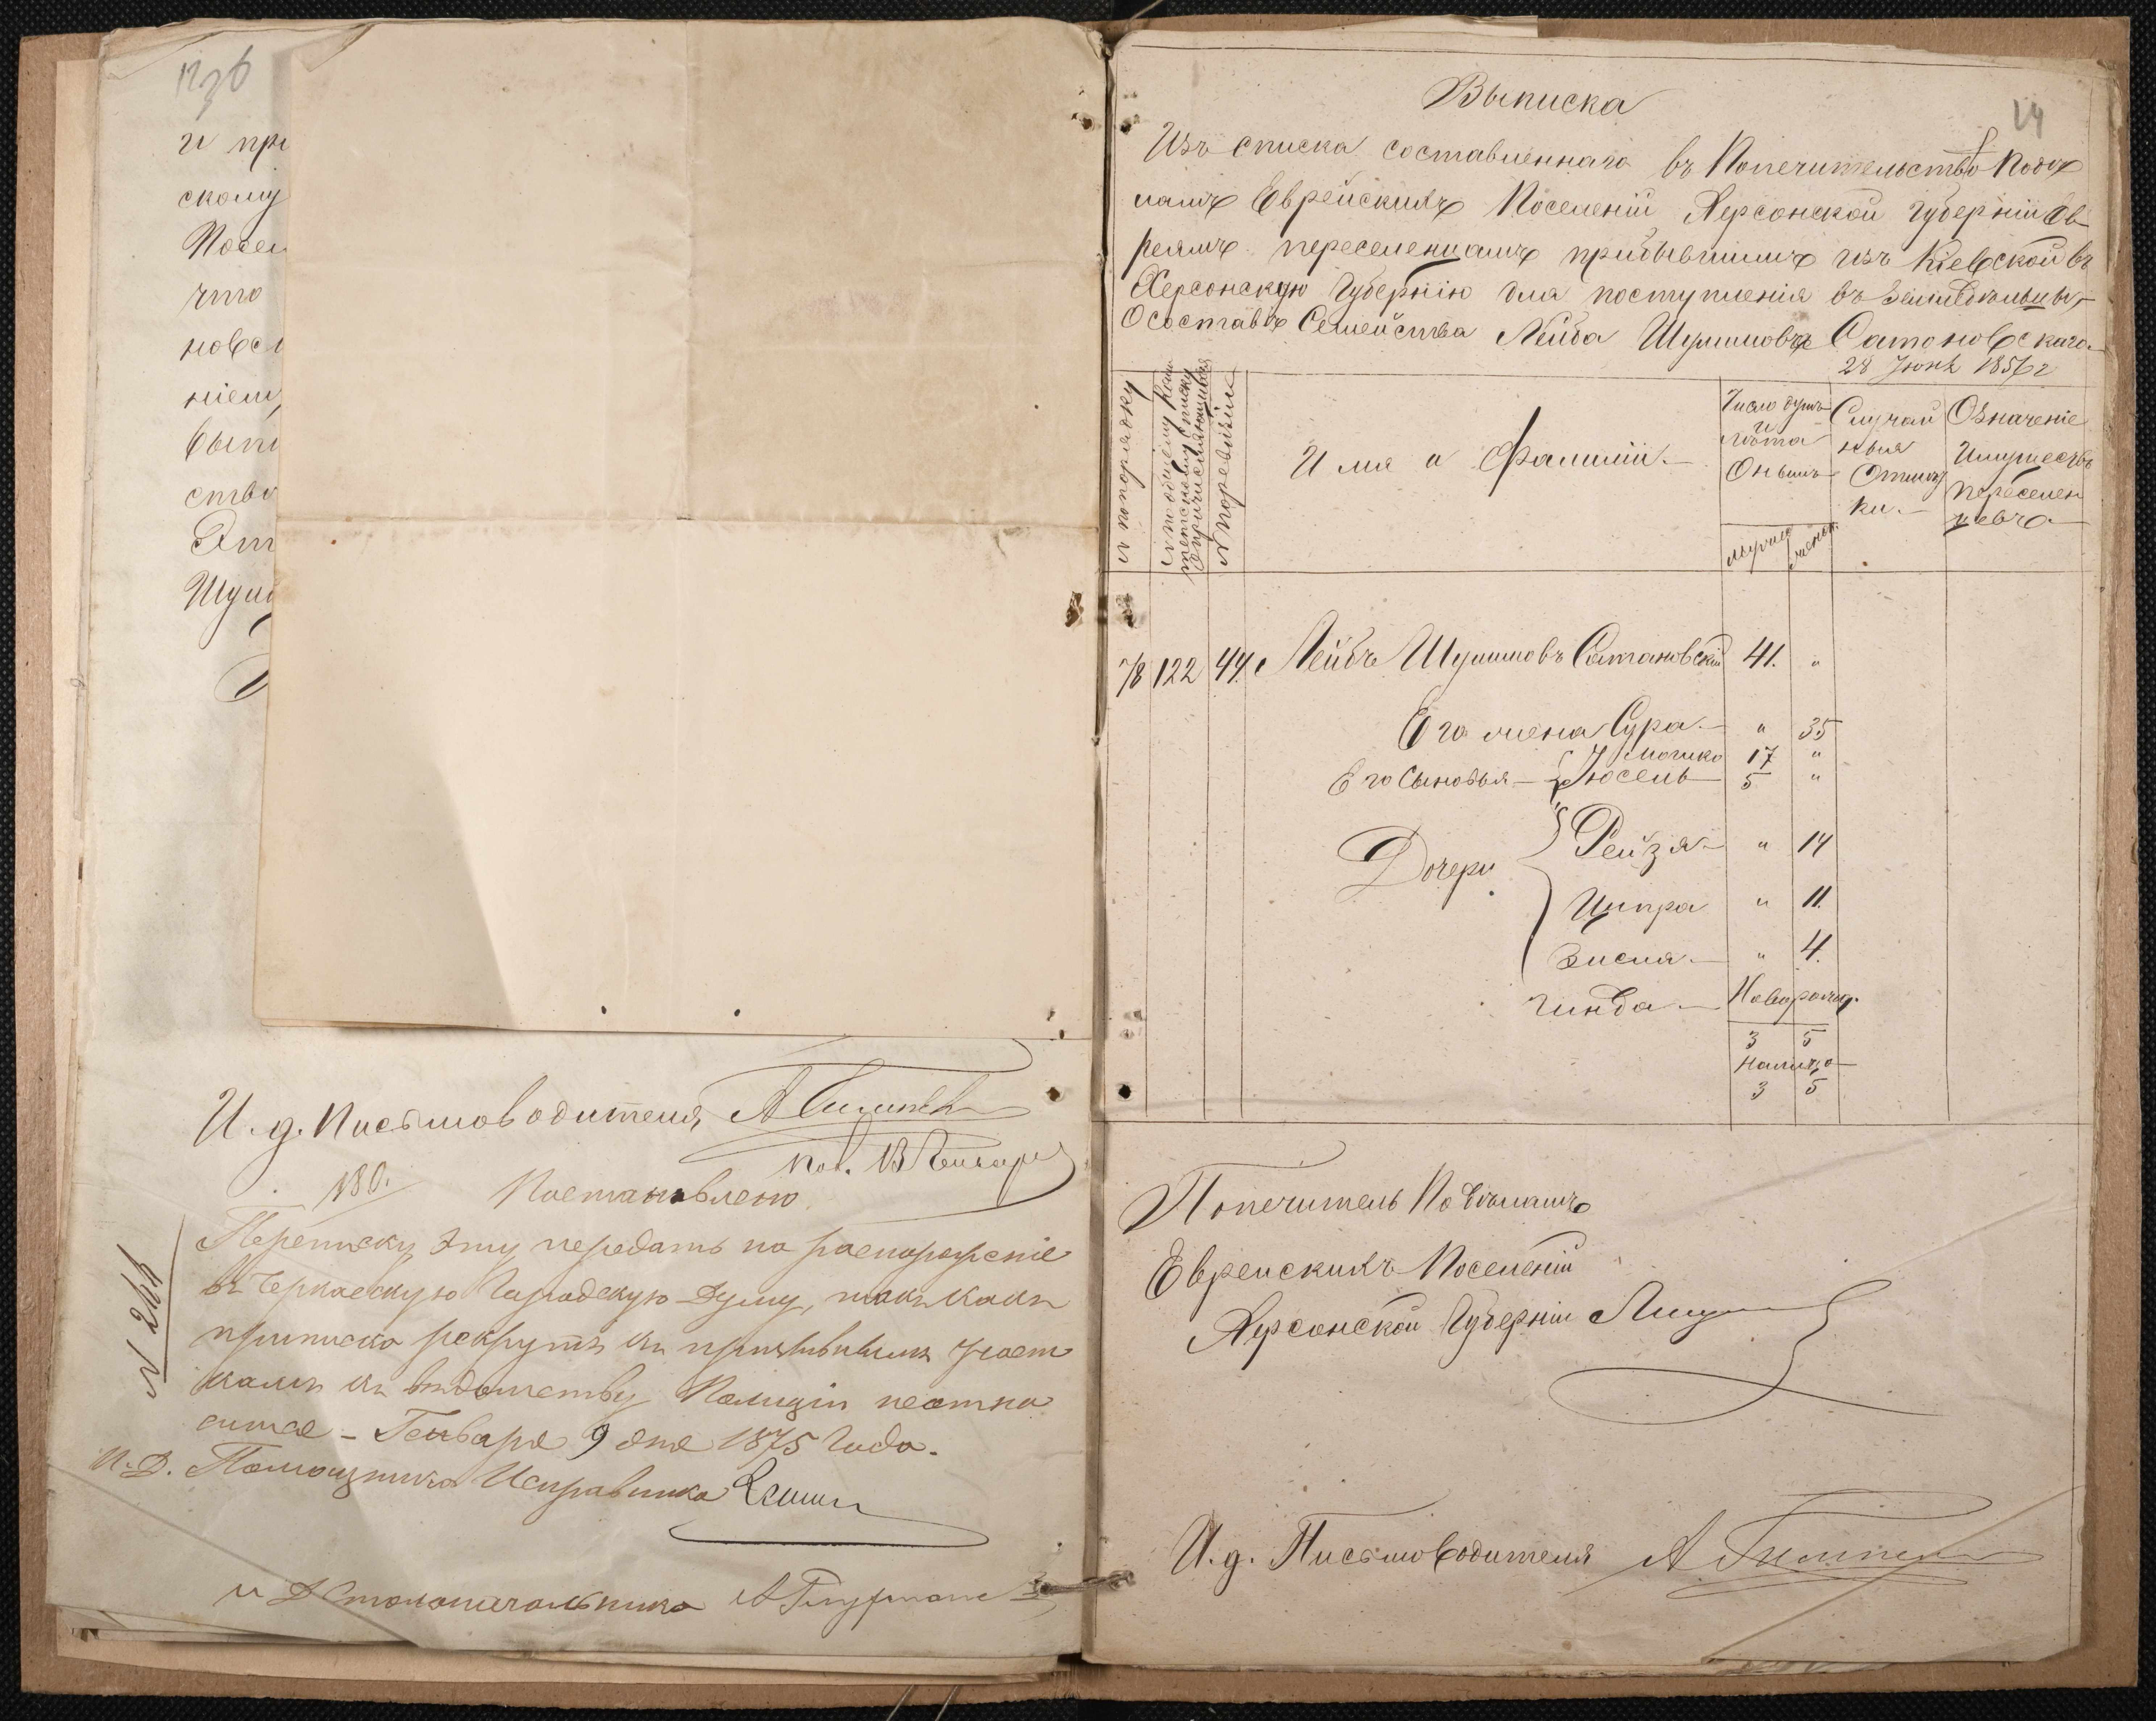 и при
скому
Посел
что
новск
ніем
быт
ство
Эт
И. д. Письмоводителя
180.
Постановлено
№ 244
Переписку эту передать на распоряженіе
въ Черкасскую Городскую Думу, такъ какъ
приписка рекрутъ къ призывнымъ участ
камъ къ вѣдомству Полиціи неотно
сится – Генваря 9 дня 1875 Года.
И. Д. Помощника Исправника
и Д Столоначальника
Выписка
Изъ списка составленнаго въ Попечительство по дѣ
ламъ Еврейскихъ Поселеній Херсонской Губерніи Ев
реямъ переселенцамъ прибывшимъ изъ Кіевской въ
Херсонскую Губернію для поступленія въ Земледѣльцы,
О составѣ Семейства Лейба Шулимовъ Сатановскаго
28 Іюня 1857 г
№ попорядку
№ пообщему Каме
ральному списку
№ поревизіи
Имя и Фамиліи.
Число душъ
и
лѣта
Онымъ
мужес
женск
Случай
ныя
Отмѣт
ки.
Означеніе
Имуществъ
переселен
цевъ
78 122 44. Лейбъ Шулимовъ Сатановскій 41. "
Его жена Сура " 35
Его Сыновья Мошко 17 "
Іосель 5 "
Дочери Рейзя " 14
Ципра " 11.
Зисля " 4.
Гинда Новорожд.
3 5
Налицо
3 5
Попечитель По Дѣламъ
Еврейскихъ Поселеній
Херсонской Губерніи
И. д. Письмоводителя